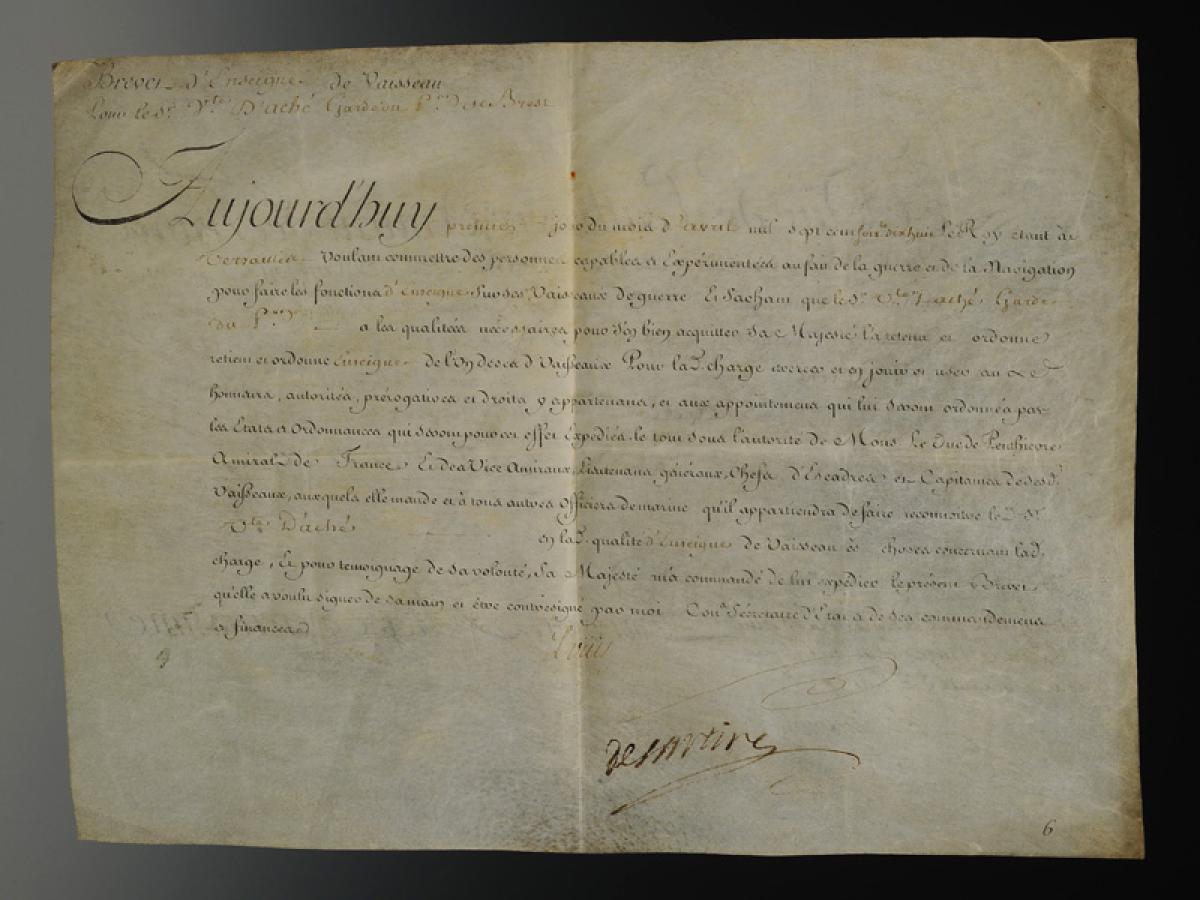 Brevet d'Enseigne de Vaisseau
Pour le Sr. Vte D'aché Garde du Pon De Brest
Aujourd'huy premier jour du mois d'avril mil sept cent soixte dix huit Le Roy etant à
Versailles Voulant commettre des personnes capables et Expérimentées au fait de la guerre et de la Navigation
pour faire les fonctions d'Enseigne sur ses Vaisseaux de guerre Et Sachant que le Sr. Vte D'aché Garde
du Pon a les qualitées nécessaires pour s'en bien acquitter Sa Majesté l'a retenu et ordonné
retient et ordonne Enseigne de l'un de ses d. Vaisseaux Pour lad. charge exercer et en jouir et user aux
honneurs, autorités, prérogatives et droits y appartenans, et aux appointemens qui lui seront ordonnés par
les Etats et Ordonnances qui seront pour cet effet Expédiés, le tout sous l'autorité de Mons. Le Duc de Penthievre
Amiral de France, Et des Vice Amiraux, Lieutenans généraux, Chefs d'Escadres et Capitaines de ses d.
Vaisseaux, auxquels elle mande et à tous autres Officiers de marine qu'il appartiendra de faire reconnoitre le d. Sr.
Vte D'aché en lad. qualité d'Enseigne de Vaisseau ès choses concernant lad.
charge, Et pour temoignage de sa volonté, Sa Majesté m'a commandé de lui expedier le présent Brevet
qu'elle a voulu signer de sa main et être contresigné par moi Conr. Sécretaire d'Etat et de ses commandemens
et finances
Louis
De Sartine
6